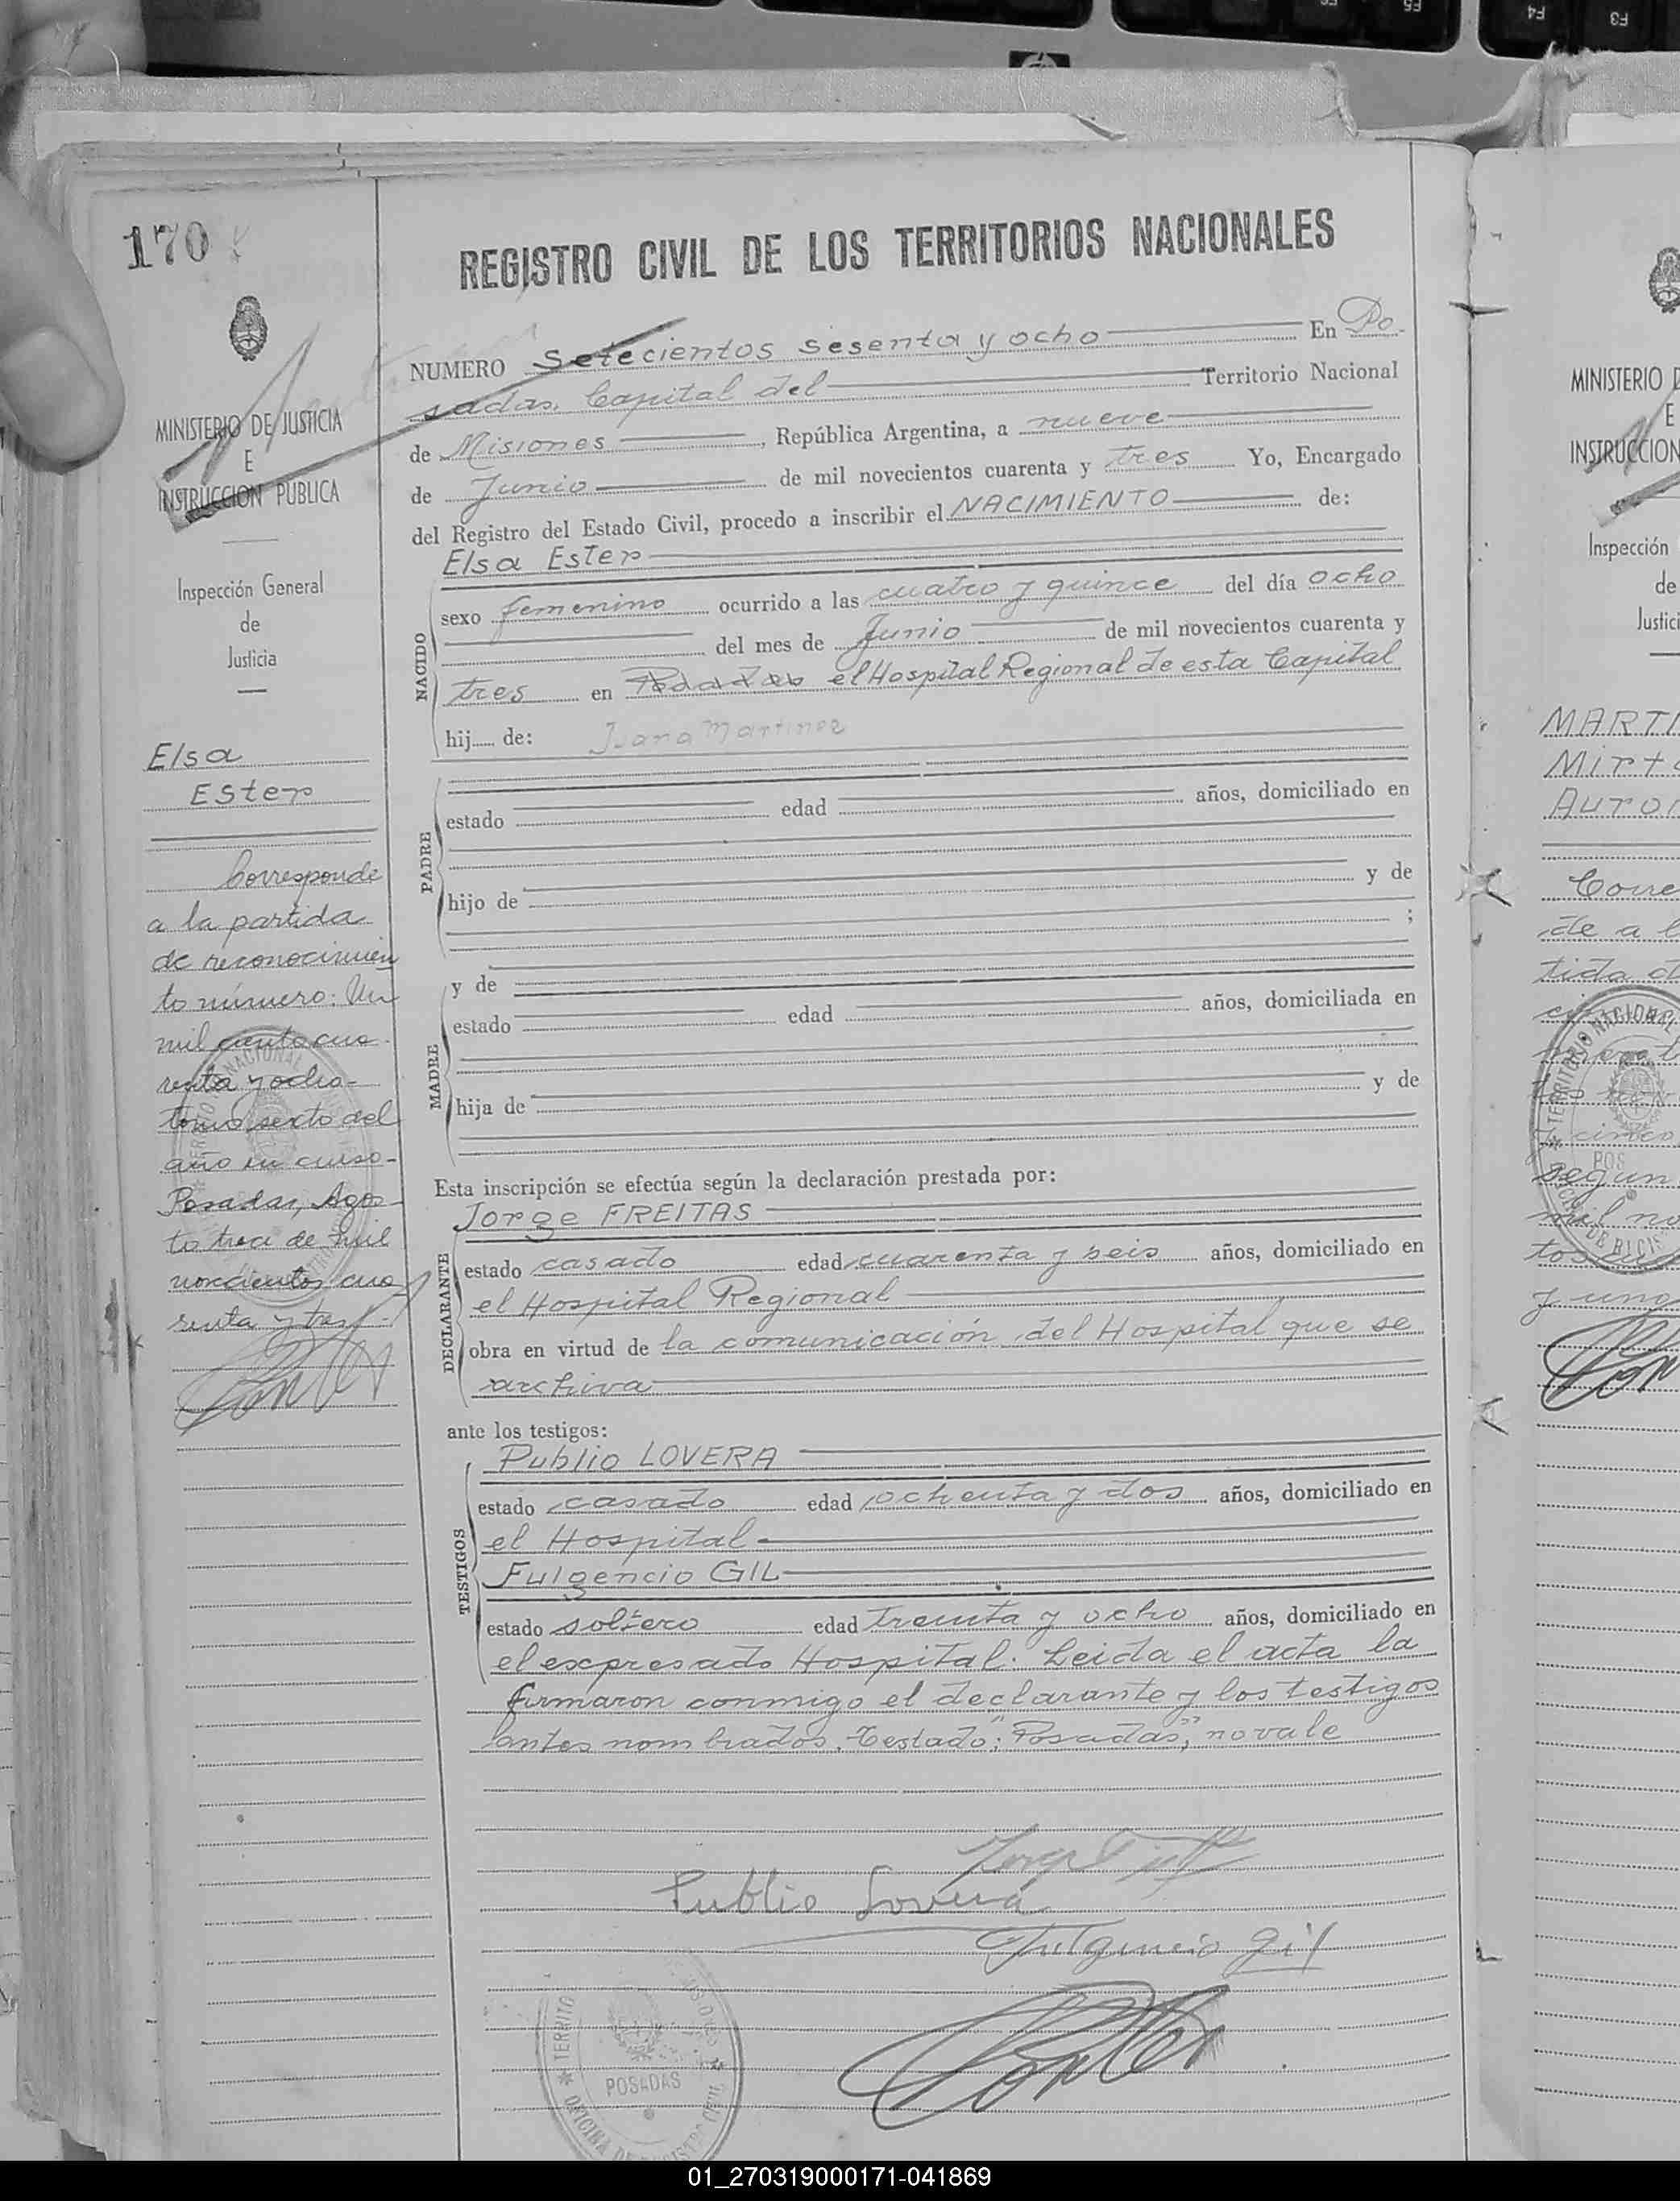 170
REGISTRO CIVIL DE LOS TERRITORIOS NACIONALES
MINISTERIO DE JUSTICIA
E
INSTRUCCION PUBLICA
Inspección General
de
Justicia
Elsa
Ester
Corresponde
a la partida
de reconocimien
to número: Un
mil ciento cua-
renta y ocho-
tomo sexto del
año en curso-
Posadas, Agos-
to trece de mil
novecientos cua
renta y tres.-
NUMERO Setecientos sesenta y ocho En Po-
sadas, Capital del Territorio Nacional
de Misiones, República Argentina, a nueve
de Junio de mil novecientos cuarenta y tres Yo, Encargado
del Registro del Estado Civil, procedo a inscribir el NACIMIENTO de:
Elsa Ester
NACIDO
sexo femenino ocurrido a las cuatro y quince del día ocho
del mes de Junio de mil novecientos cuarenta y
tres en Posadas el Hospital Regional de esta Capital
hij..... de: Juana Martinez
PADRE
estado edad años, domiciliado en
hijo de y de
;
MADRE
y de
estado edad años, domiciliada en
hija de y de
Esta inscripción se efectúa según la declaración prestada por:
Jorge FREITAS
DECLARANTE
estado casado edad cuarenta y seis años, domiciliado en
el Hospital Regional
obra en virtud de la comunicación del Hospital que se
archiva
ante los testigos:
Publio LOVERA
TESTIGOS
estado casado edad ochenta y dos años, domiciliado en
el Hospital
Fulgencio GIL
estado soltero edad treinta y ocho años, domiciliado en
el expresado Hospital. Leida el acta la
firmaron conmigo el declarante y los testigos
antes nombrados. Testado: "Posadas", no vale
Publio Lovera
Fulgencio Gil
TERRITO
POSADAS
MINISTERIO
E
INSTRUCCION
Inspección
de
MARTI
Mirt
Auror
01_270319000171-041869